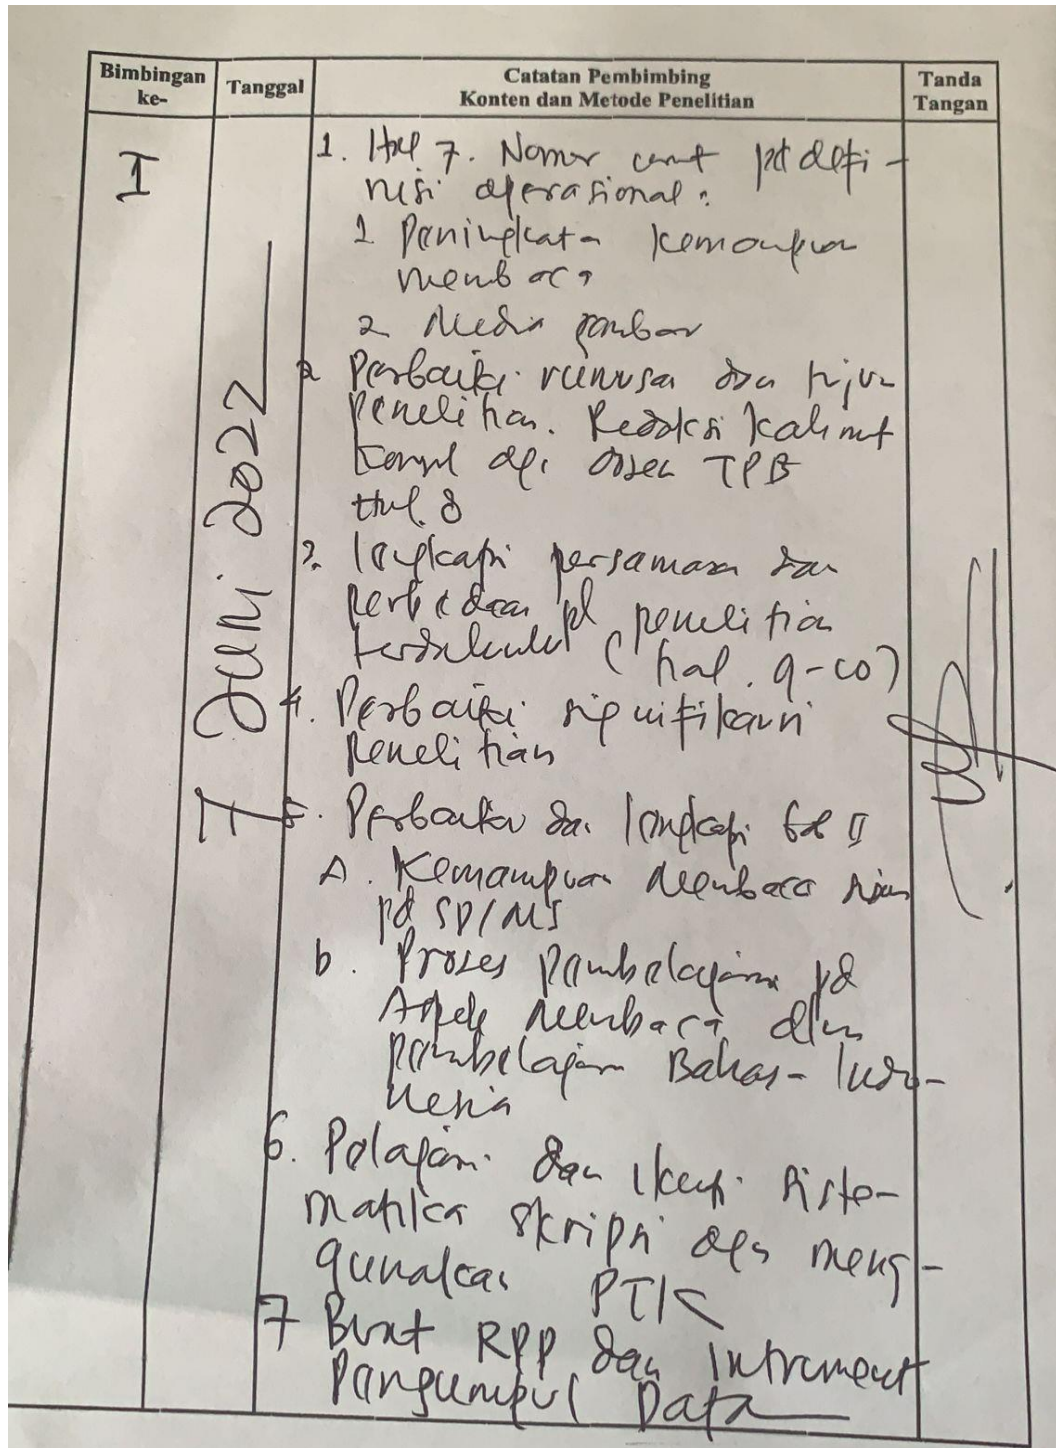 Bimbingan ke-
Tanggal
Catatan Pembimbing
Konten dan Metode Penelitian
Tanda Tangan
I
7 Juni 2022
1. Hal 7. Nomor urut pd defi-
nisi operasional:
1 Peningkatan kemampuan
membaca
2 Media gambar
2 Perbaiki rumusan dan tujuan
penelitian. Redaksi kalimat
dgn dosen TPB
Hal. 8
3. lengkapi persamaan dan
perbedaan pd penelitian
terdahulu (hal. 9-10)
4. Perbaiki signifikansi
penelitian
5. Perbaiki dan lengkapi bab II
A. Kemampuan Membaca siswa
pd SD/MI
b. Proses pembelajaran pd
Aspek Membaca dlm
pembelajaran Bahasa Indo-
nesia
6. Pelajari dan ikuti siste-
matika skripsi dgn meng-
gunakan PTK
7 Buat RPP dan Intrument
Pengumpul Data